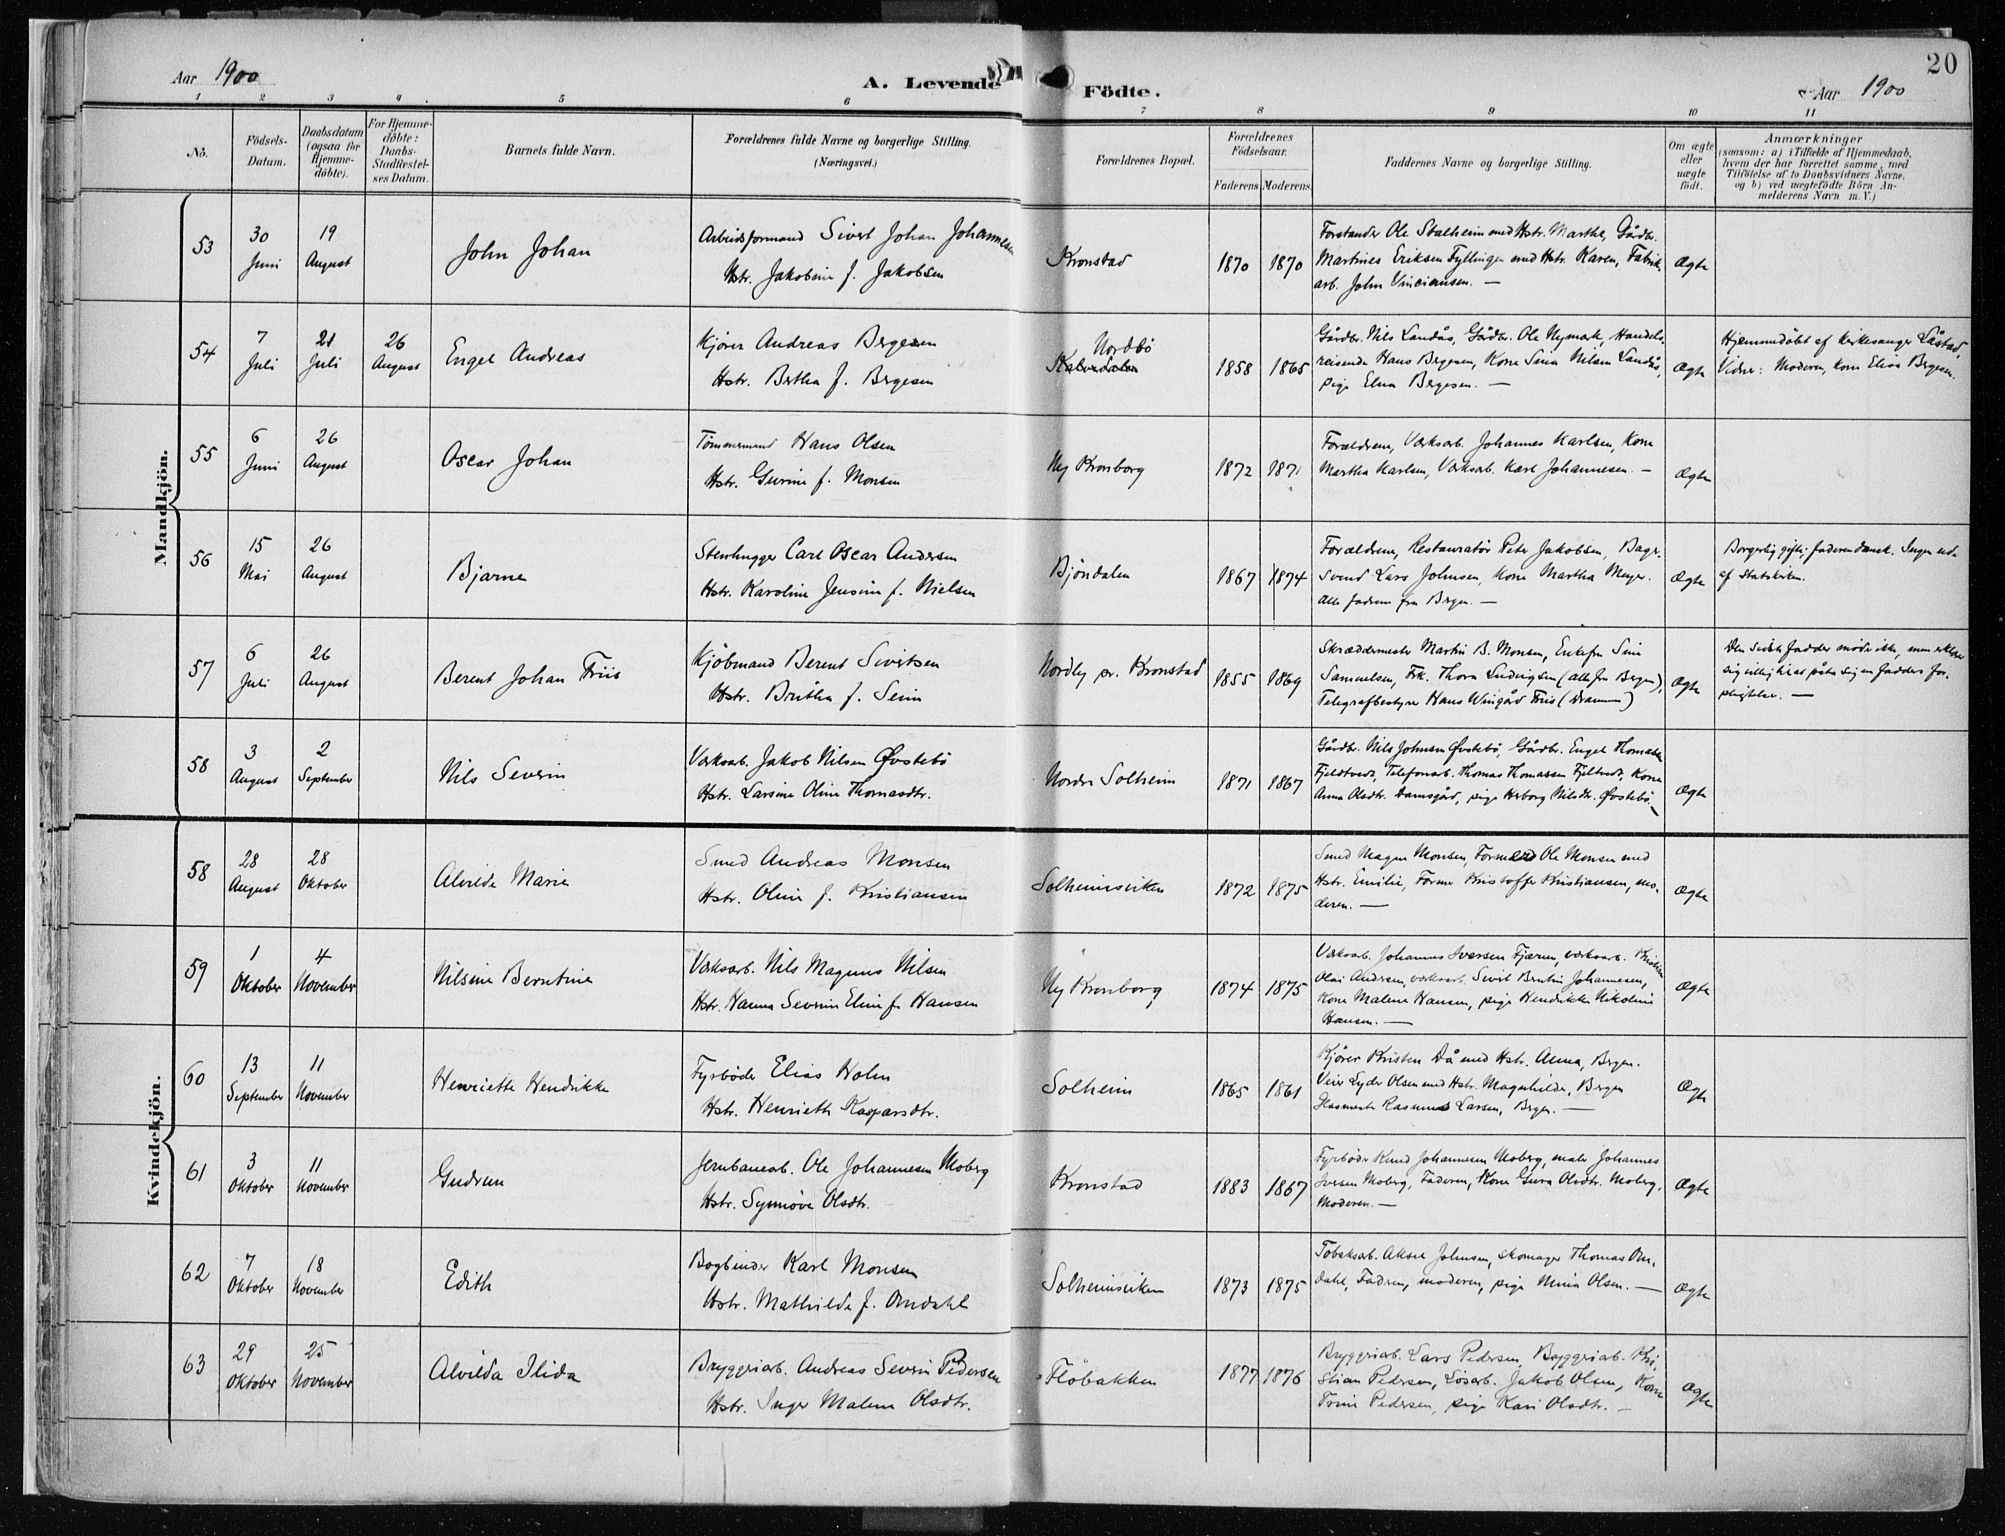 20
Aar 1900
A. Levende Födte.
Aar 1900
1 2 3 4 5 6 7 8 9 10 11
No.
Födsels-
Datum.
Daabsdatum
(ogsaa for
Hjemme-
döbte).
For Hjemme-
döbte:
Daabs-
Stadfæstel-
ses Datum.
Barnets fulde Navn.
Forældrenes fulde Navne og borgerlige Stilling.
(Næringsvei.)
Forældrenes Bopæl.
Forældrenes
Födselsaar.
Faderens Moderens
Faddernes Navne og borgerlige Stilling.
Om ægte
eller
uægte
födt.
Anmærkninger
(saasom: a) i Tilfælde af Hjemmedaab,
hvem der har forrettet samme, med
Tilföielse af to Daabsvidners Navne,
og b) ved uægtefödte Börn An-
melderens Navn m. V.)
Mandkjön.
53
30
Juni
19
August
John Johan
Arbeidsformand Sivert Johan Johannesen
Hstr. Jakobine f. Jakobsen
Kronstad
1870 1870
Forstander Ole Stalheim med Hstr. Martha, Gårdbr.
Martines Eriksen Fyllingen med Hstr. Karen, Fabrik
arb. John Vinciansen. —
Ægte
54
7
Juli
21
Juli
26
August
Engel Andreas
Kjører Andreas Bergesen
Hstr. Bertha f. Bergesen
Nordbö
Kalvedalen
1858 1865
Gårdbr. Nils Landås, Gårdbr. Ole Nymark, Handels-
reisende Hans Bergesen, Kone Sina Nilsen Landås,
pige Elna Bergesen. —
Ægte
Hjemmedöbt af kirkesanger Låstad,
Vidner: Moderen, kone Elisa Bergesen.
55
6
Juni
26
August
Oscar Johan
Tømmermand Hans Olsen
Hstr. Gurine f. Monsen
Ny Kronborg
1872 1871
Forældrene, Værksarb. Johannes Karlsen, Kone
Martha Karlsen, Værksarb. Karl Johannesen. —
Ægte
56
15
Mai
26
August
Bjarne
Stenhugger Carl Oscar Andersen
Hstr. Karoline Jensine f. Nielsen
Bjöndalen
1867 1874
Forældrene, Restauratör Peter Jakobsen, Bager-
svend Lars Johnsen, Kone Martha Meyer.
Alle faddrene fra Bergen. —
Ægte
Borgerlig gifte, faderen dansk. Ingen ude
af Statskirken.
57
6
Juli
26
August
Berent Johan Friis
Kjöbmand Berent Sivertsen
Hstr. Britha f. Seim
Nordly pr. Kronstad
1855 1869
Skræddermester Martin B. Monsen, Enkefru Sine
Samuelsen, Frk. Thora Ludvigsen (alle fra Bergen),
Telegrafbestyrer Hans Wingård Friis (Drammen)
Ægte
Den sidste fadder mødte ikke, men erklærte
sig villig til at påta sig en fadders for-
pligtelser. —
58
3
August
2
September
Nils Severin
Værksarb. Jakob Nilsen Øvstebö
Hstr. Larsine Oline Thomasdtr.
Nordre Solheim
1871 1867
Gårdbr. Nils Johnsen Øvstebö, Gårdbr. Engel Thomassen
Fjeldtvedt, Telefonarb. Thomas Thomassen Fjeltvedt, Kone
Anna Olsdtr. Damsgård, pige Herborg Nilsdtr. Øvstebö. —
Ægte
Kvindekjön.
58
28
August
28
Oktober
Alvilde Marie
Smed Andreas Monsen
Hstr. Oline f. Kristiansen
Solheimsviken
1872 1875
Smed Magne Monsen, Formand Ole Monsen med
Hstr. Emilie, Former Kristoffer Kristiansen, mo-
deren. —
Ægte
59
1
Oktober
4
November
Nilsine Berntine
Værksarb. Nils Magnus Nilsen
Hstr. Hanna Severine Eline f. Hansen
Ny Kronborg
1874 1875
Værksarb. Johannes Iversen Fjæren, værksarb. Kristian
Olai Andersen, værksarb. Sivert Berntin Johannesen,
Kone Malene Hansen, pige Hendrikke Nikoline
Hansen. —
Ægte
60
13
September
11
November
Henriette Hendrikke
Fyrbøder Elias Holm
Hstr. Henriette Kasparsdtr.
Solheim
1865 1861
Kjører Kristen Då med Hstr. Anna, Bergen.
Veier Lyder Olsen med Hstr. Magnhilde, Bergen
Rasmus Larsen, Bergen. —
Ægte
61
3
Oktober
11
November
Gudrun
Jernbanearb. Ole Johannesen Moberg
Hstr. Synnöve Olsdtr.
Kronstad
1883 1867
Fyrbøder Knud Johannesen Moberg, maler Johannes
Iversen Moberg, Faderen, Kone Guro Olsdtr. Moberg,
Moderen. —
Ægte
62
7
Oktober
18
November
Edith
Bogbinder Karl Monsen
Hstr. Mathilde f. Omdahl
Solheimsviken
1873 1875
Tobaksarb. Aksel Johnsen, skomager Thomas Om-
dahl, Fadren, moderen, pige Mina Olsen. —
Ægte
63
29
Oktober
25
November
Alvilda Ilida
Bryggeriarb. Andreas Severin Pedersen
Hstr. Inger Malene Olsdtr.
Flöbakken
1877 1876
Bryggeriarb. Lars Pedersen, Bryggeriarb. Kri-
stian Pedersen, Løsarb. Jakob Olsen, Kone
Trine Pedersen, pige Kari Olsdtr. —
Ægte